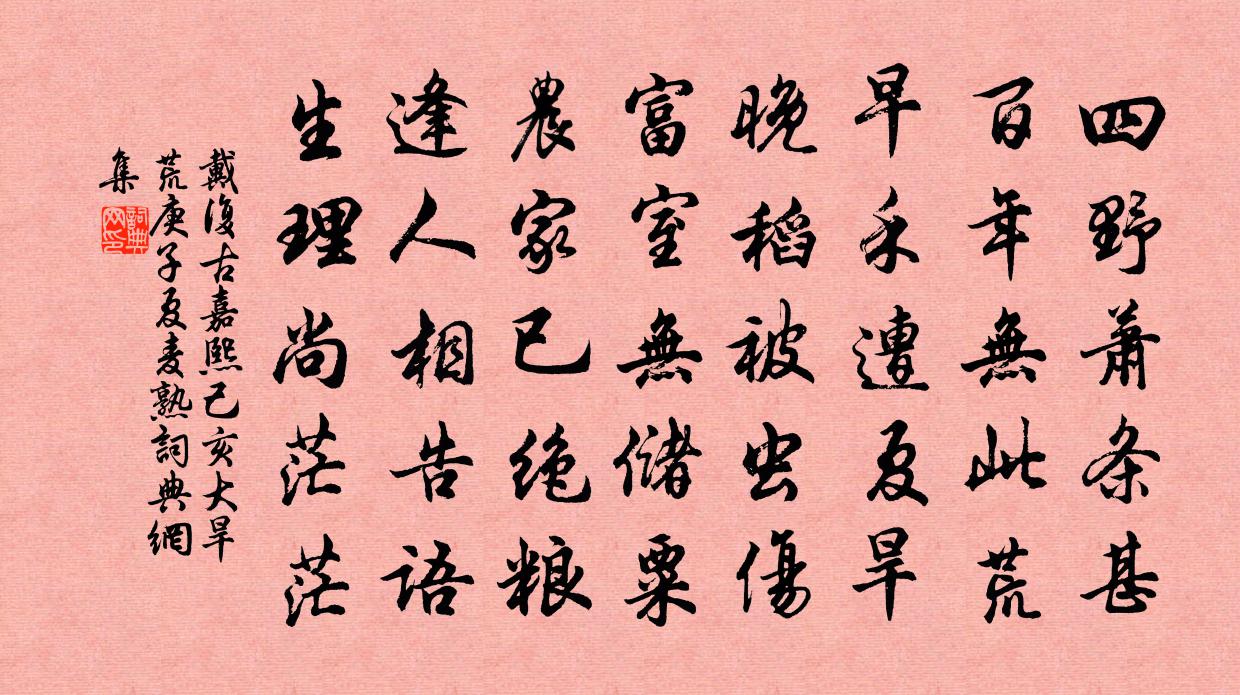 四野萧条甚
百年無此荒
早禾遭夏旱
晚稻被虫傷
富室無儲粟
農家已绝粮
逢人相告語
生理尚茫茫
戴復古嘉熙己亥大旱
荒庚子夏麦熟詞典網
集
詞典网印